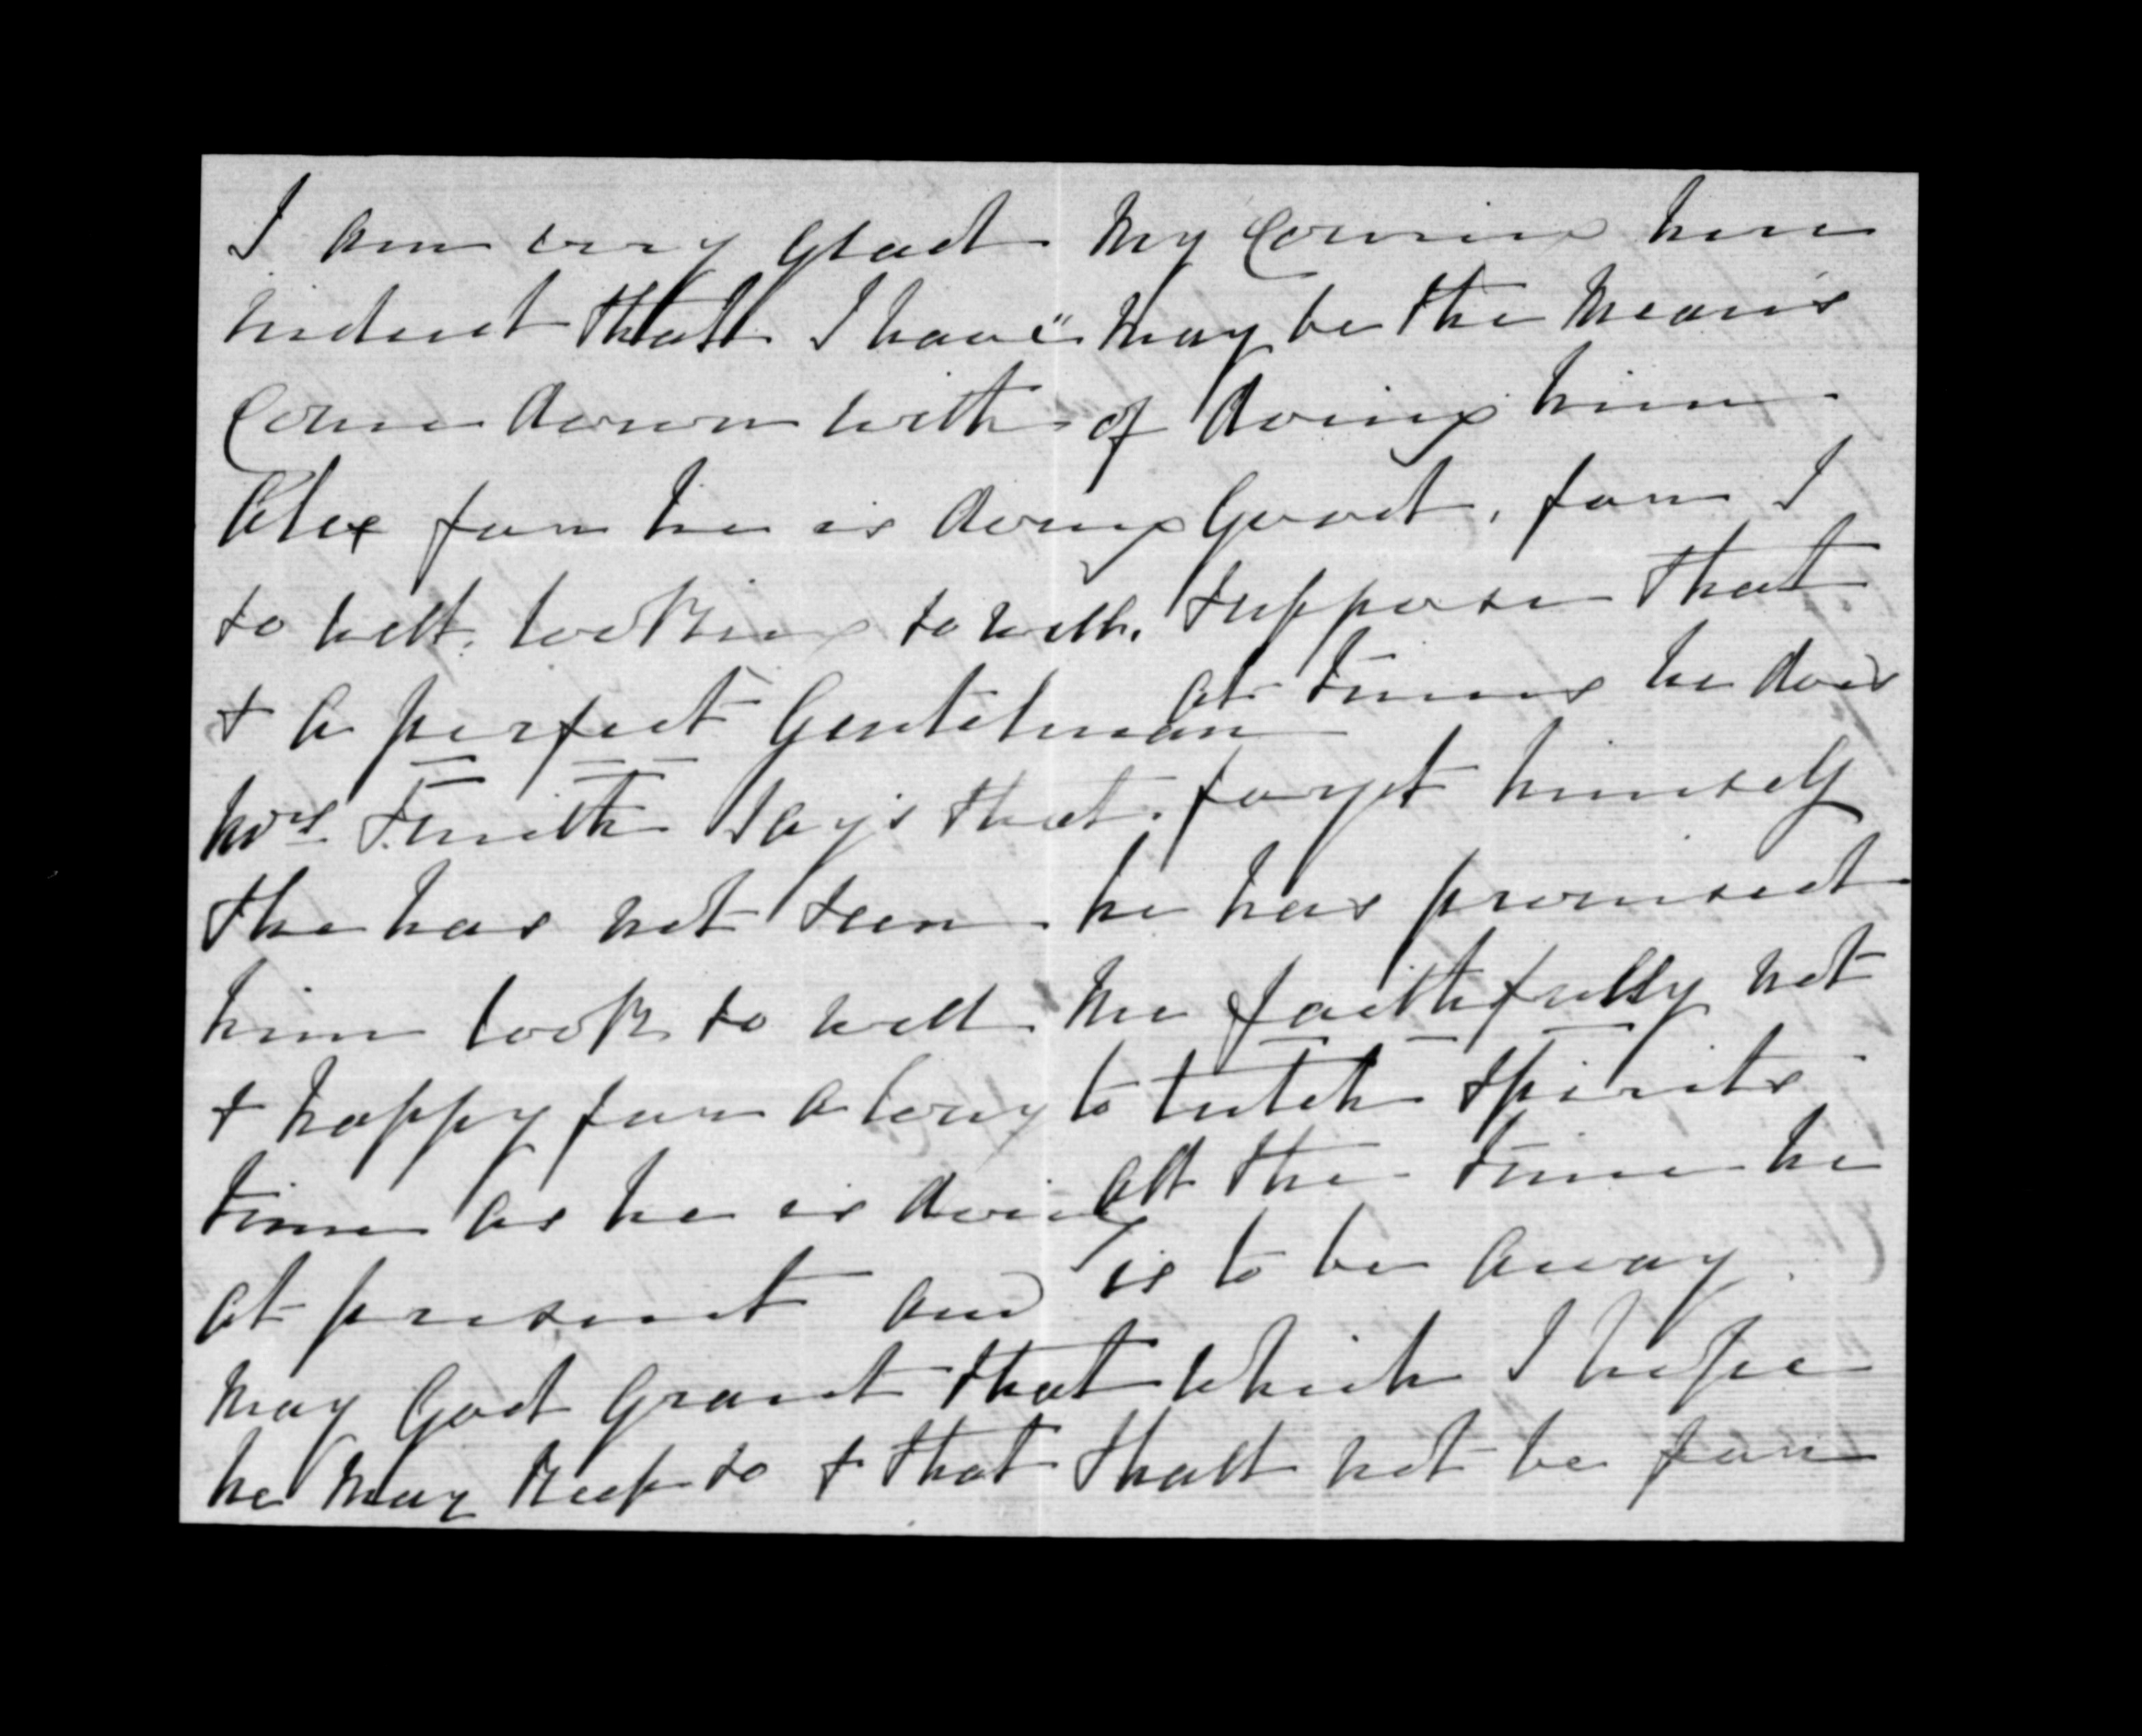 I am very glad
indeed that I have
Come down with
Alex for he is doing
so well. looking so well.
& a perfect Gentleman
Mrs. Smith say's that
she has not seen
him look so well
& happy for a long
time as he is doing
at present and
may God Grant that
he may keep so & that
my Coming here
may be the means
of doing him
Good, for I
suppose that
at times he does
forget himself
he has promised
me faithfully not
to tutch spirits
all the time he
is to be away
which I hope
shall not be for